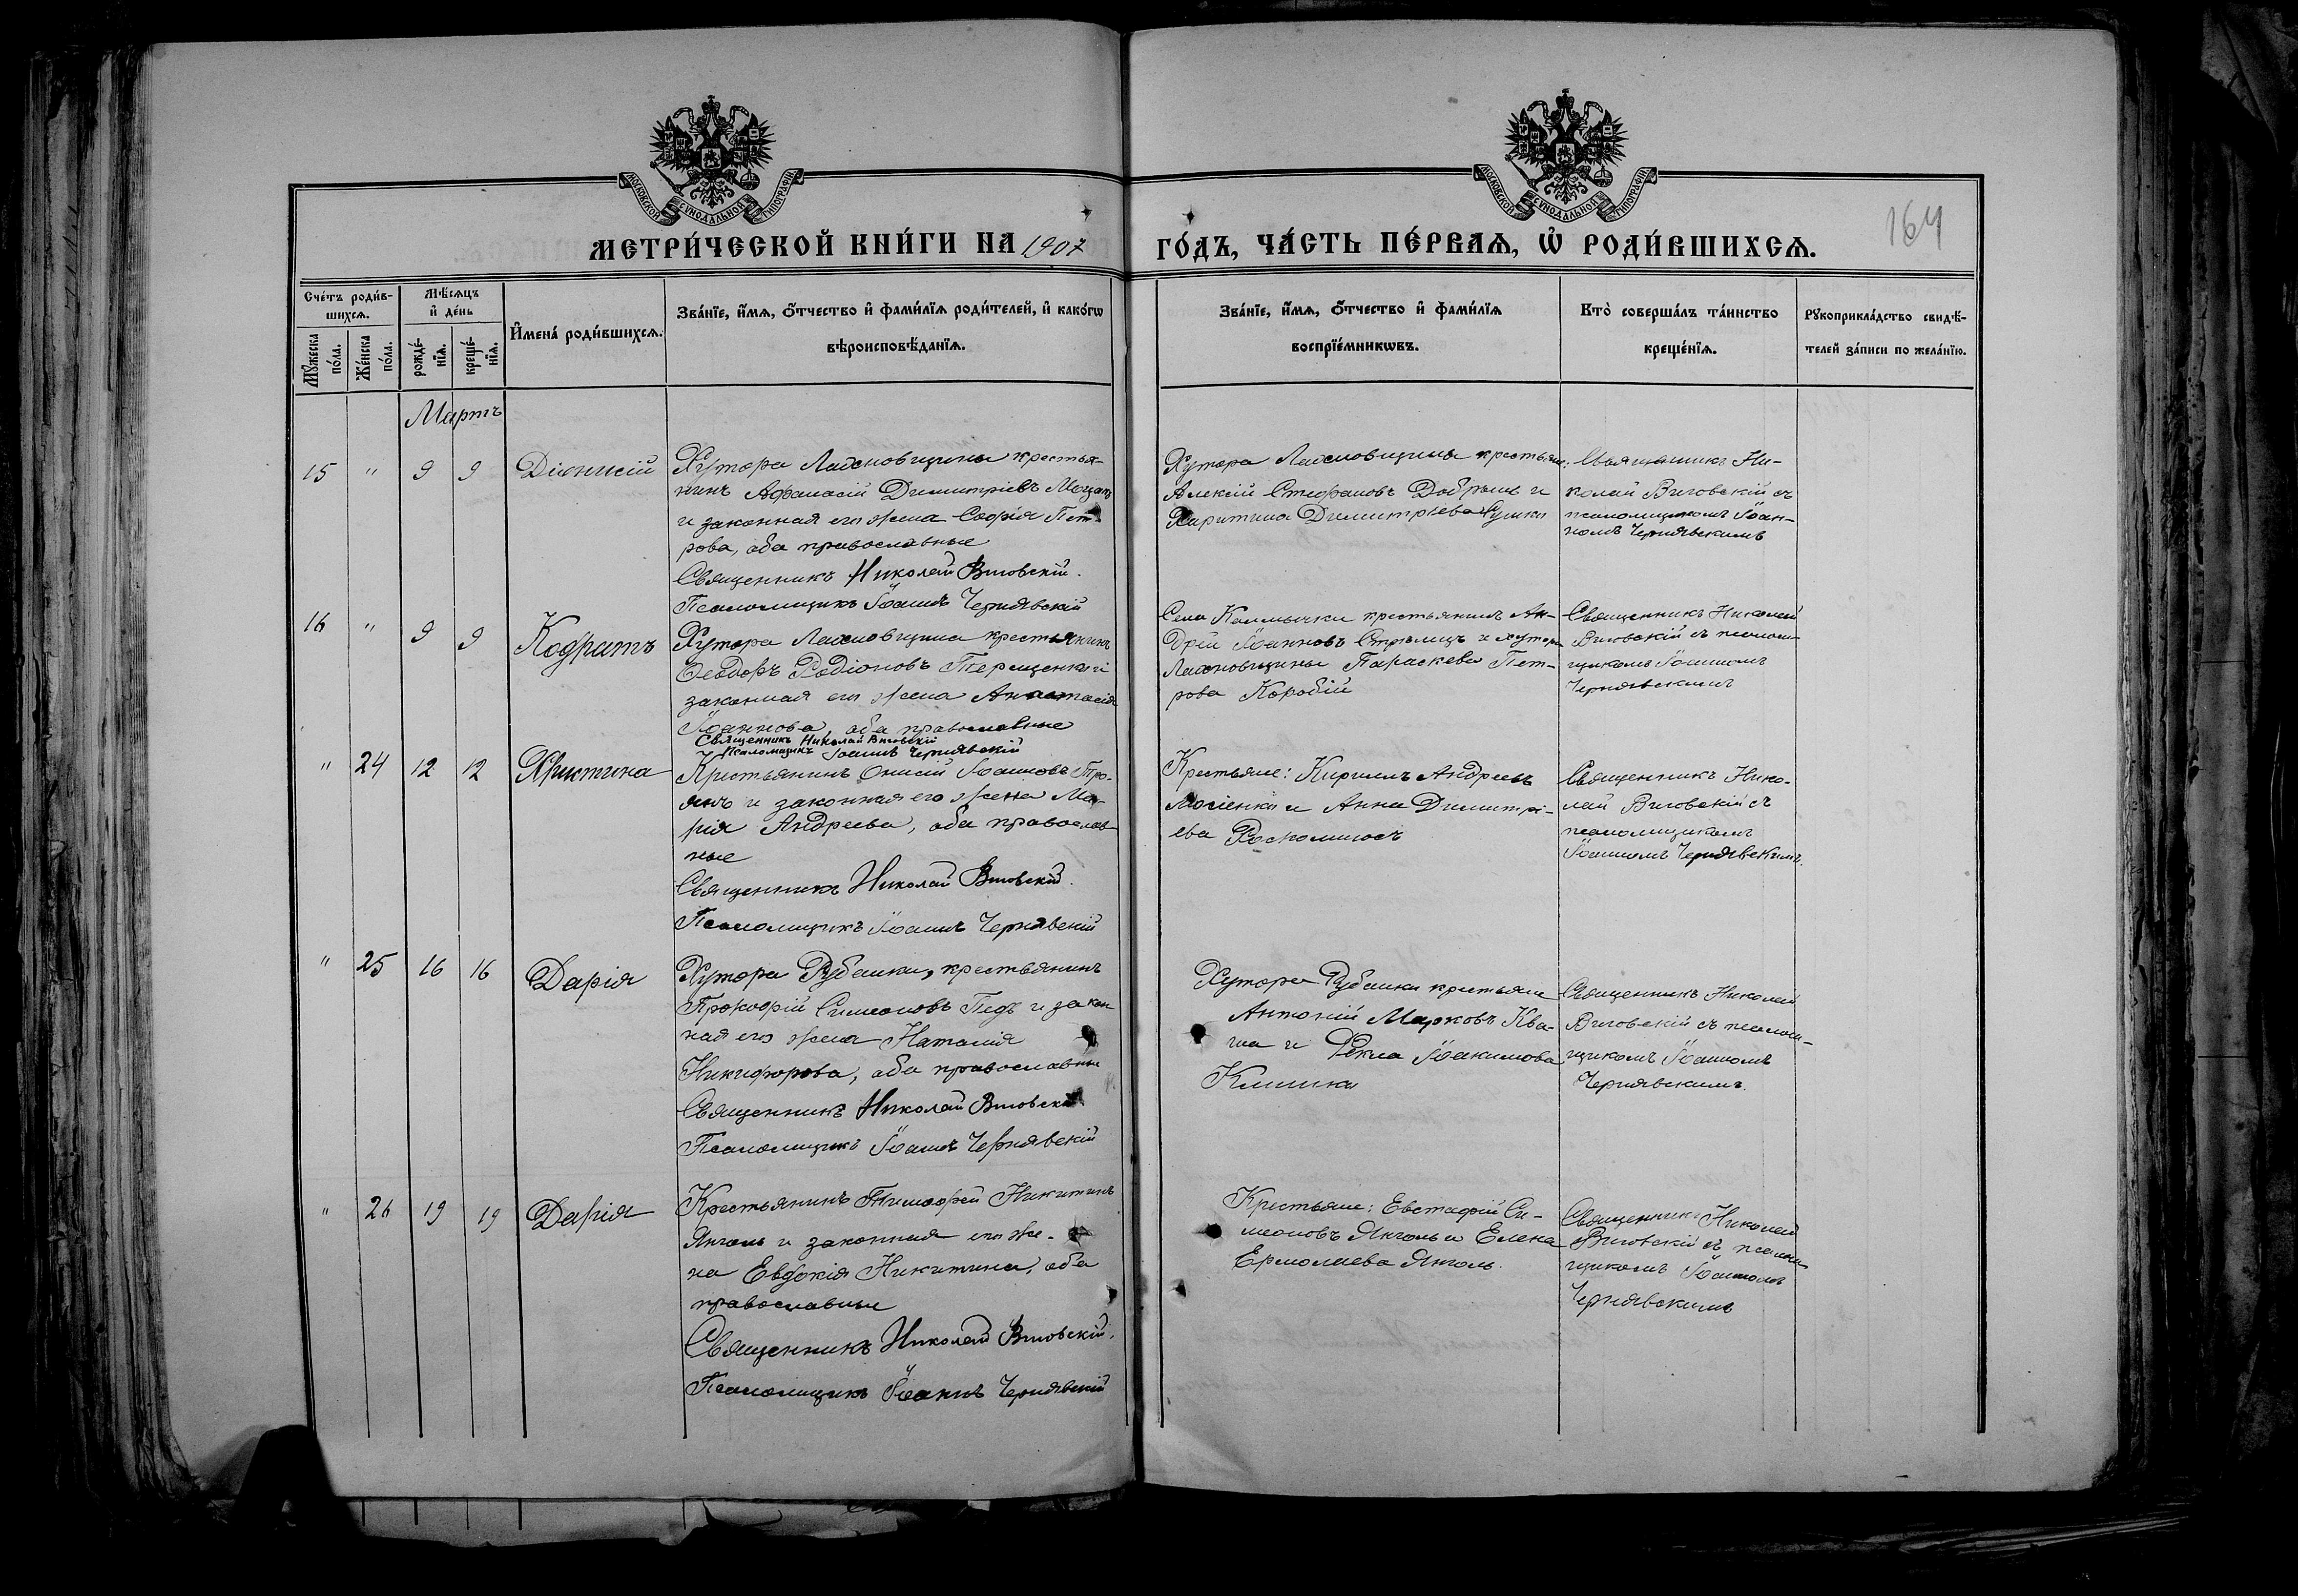 МОСКОВСКОЙ СѴНОДАЛЬНОЙ ТИПОГРАФІИ
МОСКОВСКОЙ СѴНОДАЛЬНОЙ ТИПОГРАФІИ
164
МЕТРИ́ЧЕСКОЙ КНИ́ГИ НА 1907
ГО́ДЪ, ЧА́СТЬ ПЕ́РВАѦ, Ѡ҆ РОДИ́ВШИХСѦ.
Сче́тъ роди́в-
шихсѧ.
Мꙋ́жеска по́ла.
Же́нска по́ла.
Мѣ́сѧцъ
и҆ де́нь
рожде́-
нїѧ.
креще́-
нїѧ.
И҆мена̀ роди́вшихсѧ.
Зва́нїе, и҆́мѧ, ѻ҆́тчество и҆ фами́лїѧ роди́телей, и҆ како́гѡ
вѣроисповѣ́данїѧ.
Зва́нїе, и҆́мѧ, ѻ҆́тчество и҆ фами́лїѧ
воспрїе́мникѡвъ.
Кто̀ соверша́лъ та́инство
креще́нїѧ.
Рꙋкоприкла́дство свидѣ́-
телей за́писи по жела́нїю.
Мартъ
15 " 9 9 Діонисій
Хутора Лайновщины крестья-
нинъ Афанасій Димитріевъ
и законная его жена Софія Пет-
рова, оба православные
Священникъ Николай Виговскій.
Псаломщикъ Іоаннъ Чернявскій
Хутора Лайновщины крестьяне:
Алексій Стефановъ и
Харитина Димитріева
Священникъ Ни-
колай Виговскій съ
псаломщикомъ Іоан-
номъ Чернявскимъ
16 " 9 9 Кодратъ
Хутора Лайновщина крестьянинъ
Ѳеодоръ Родіоновъ Терещенко и
законная его жена Анастасія
Іоаннова, оба православные
Священникъ Николай Виговскій
Псаломщикъ Іоаннъ Чернявскій
Села Калмычки крестьянинъ Ан-
дрей Іоанновъ Стрѣлецъ и хутора
Лайновщины Параскева Пет-
рова Коробій
Священникъ Николай
Виговскій съ псалом-
щикомъ Іоанномъ
Чернявскимъ
" 24 12 12 Христина
Крестьянинъ Онисій Іоанновъ Тро-
янъ и законная его жена Ма-
рія Андреева, оба православ-
ные
Священникъ Николай Виговскій.
Псаломщикъ Іоаннъ Чернявскій
Крестьяне: Кириллъ Андреевъ
Мосіенко и Анна Димитрі-
ева
Священникъ Нико-
лай Виговскій съ
псаломщикомъ
Іоанномъ Чернявскимъ.
" 25 16 16 Дарія
Хутора Рубанки, крестьянинъ
Прокофій Симеоновъ и закон
ная его жена Наталія
Никифорова, оба православные
Священникъ Николай Виговскій
Псаломщикъ Іоаннъ Чернявскій
Хутора Рубанки крестьяне
Антоній Марковъ Ква-
ша и Ѳекла Іоакимова
Климка
Священникъ Николай
Виговскій съ псалом-
щикомъ Іоанномъ
Чернявскимъ.
" 26 19 19 Дарія
Крестьянинъ Тимофей Никитинъ
Янголь и законная его же-
на Евдокія Никитина, оба
православные
Священникъ Николай Виговскій.
Псаломщикъ Іоаннъ Чернявскій
Крестьяне: Евстафій Си-
меоновъ Янголь и Елена
Ермолаева Янголь.
Священникъ Николай
Виговскій съ псалом-
щикомъ Іоанномъ
Чернявскимъ